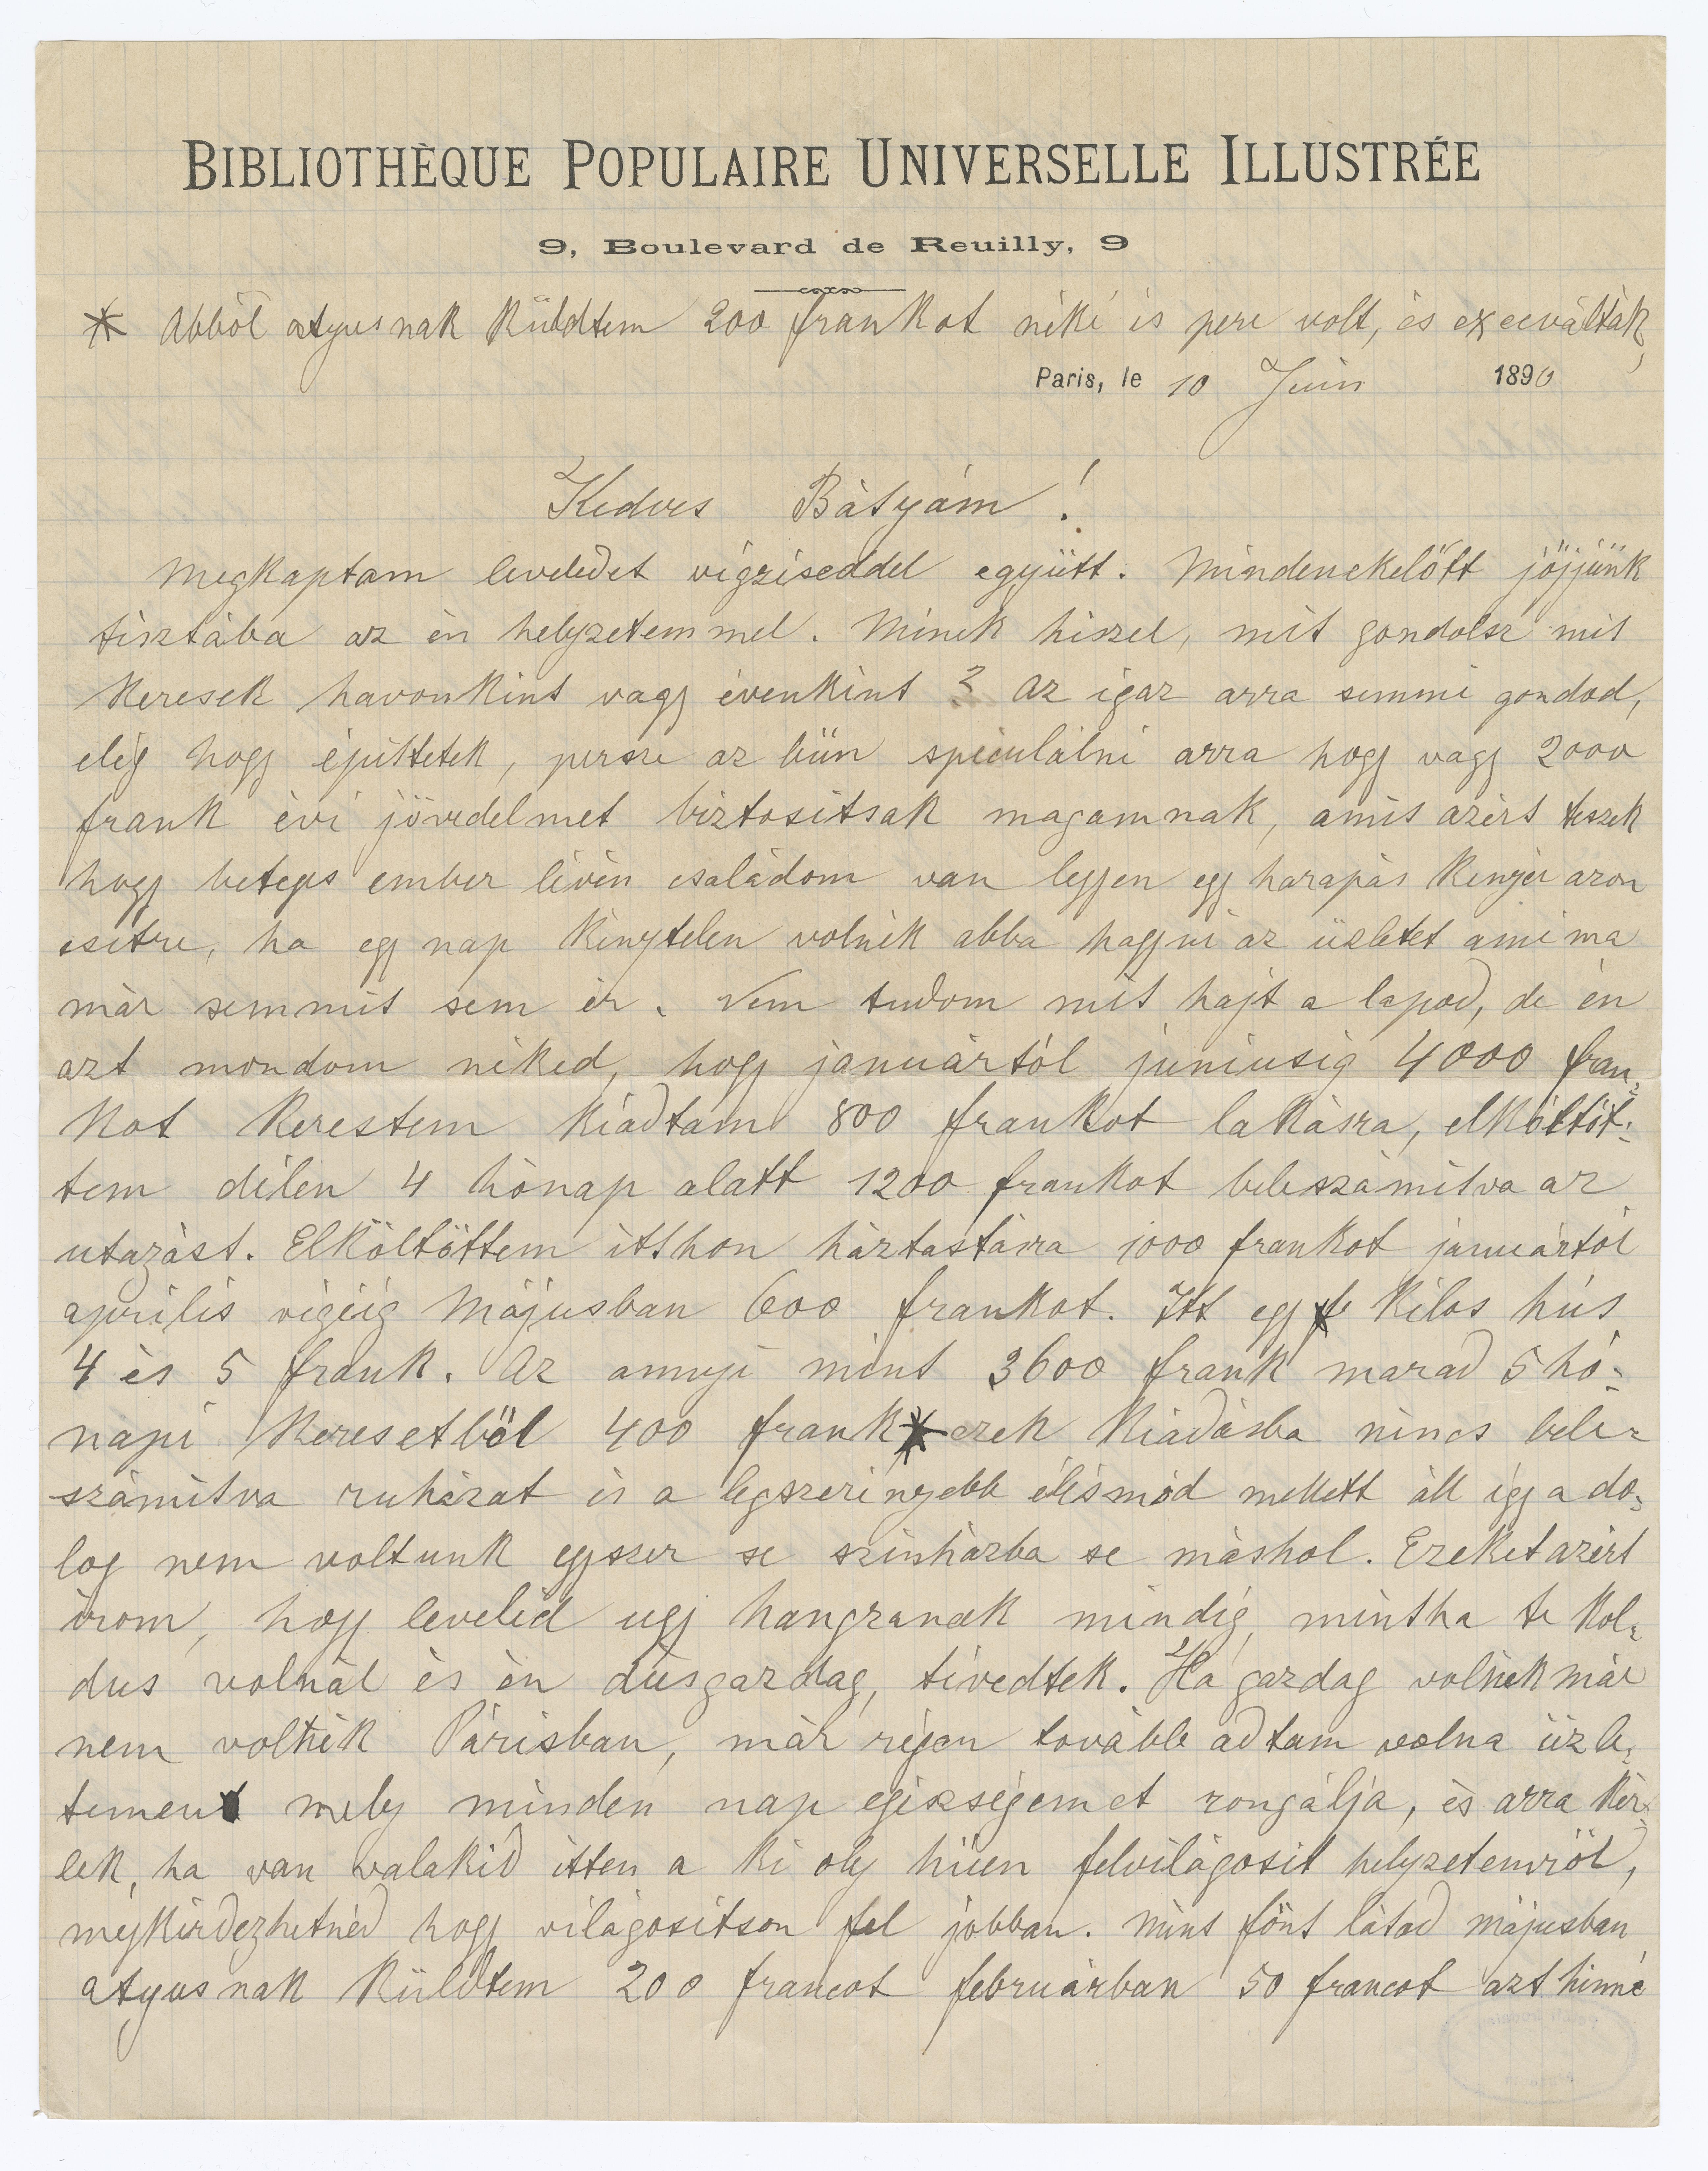 BIBLIOTHÈQUE POPULAIRE UNIVERSELLE ILLUSTRÉE
9, Boulevard de Reuilly, 9
* Abból atyusnak Küldtem 200 frankot néki is pere volt, és execválták,
Paris, le 10 Juin 1890
Kedves Bátyám!
Megkaptam leveledet végzéseddel együtt. Mindenekelőtt jöjjünk
tisztába az én helyzetemmel. Minek hiszel, mit gondolsz mit
keresek havonkint vagy évenkint? Az igaz arra semmi gondod,
elég hogy épittetek, persze az bün speculálni arra hogy vagy 2000
frank évi jövedelmet biztositsak magamnak, amit azért teszek
hogy beteges ember lévén családom van legyen egy harapás kenyér azon
esetre, ha egy nap kénytelen volnék abba hagyni az üzletet ami ma
már semmit sem ér. Nem tudom mit hajt a lapod, de én
azt mondom néked, hogy januártól juniusig 4000 fran-
kot kerestem kiadtam 800 frankot lakásra, elköltöt-
tem délen 4 hónap alatt 1200 frankot beleszámitva az
utazást. Elköltöttem itthon háztastásra 1000 frankot januártól
aprilis végéig Májusban 600 frankot. Itt egy kilos hús
4 és 5 frank. Az annyi mint 3600 frank marad 5 hó-
napi keresetből 400 frank * ezek kiadásba nincs bele-
számitva ruházat és a legszerényebb élésmód mellett áll igy a do-
log nem voltunk egyszer se szinházba se máshol. Ezeket azért
irom, hogy leveleid ugy hangzanak mindig, mintha te kol-
dus volnál és én dúsgazdag, tévedtek. Ha gazdag volnék már
nem volnék Párisban, már régen tovább adtam volna üzle-
temet mely minden nap egészségemet rongálja, és arra kér-
lek, ha van valakid itten a ki oly hüen felvilágosit helyzetemről,
megkérdezhetnéd hogy világositson fel jobban. Mint fönt látod májusban
atyusnak küldtem 200 francot februárban 50 francot azt hinné